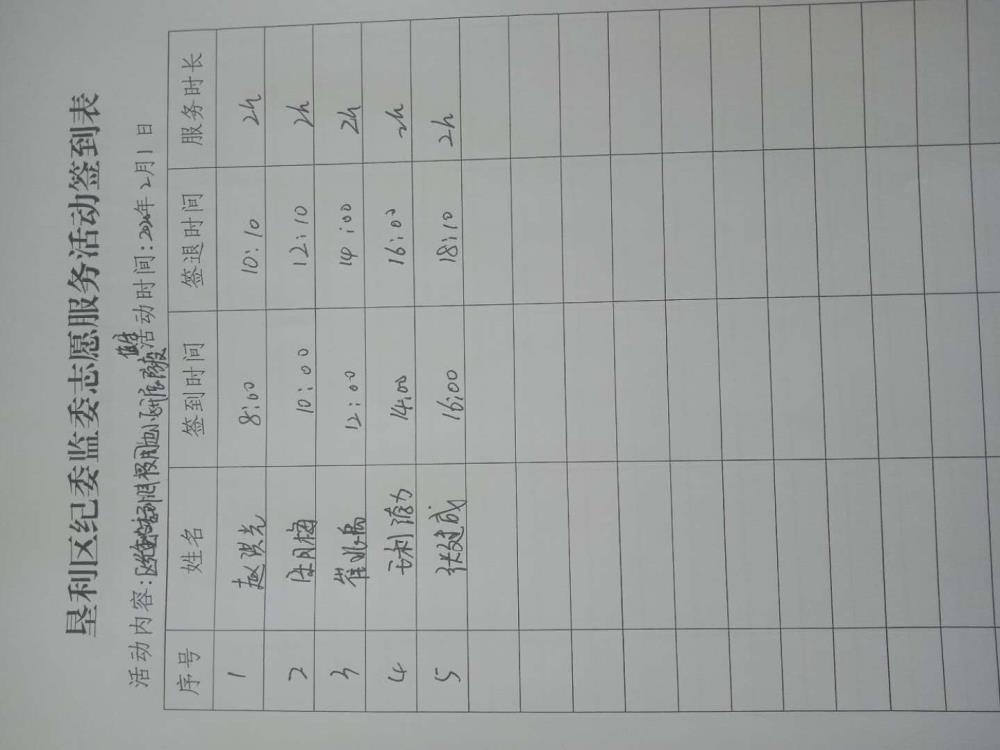 垦利区纪委监委志愿服务活动签到表
活动内容: 活动时间:2020年2月1日
序号 姓名 签到时间 签退时间 服务时长
1 赵洪光 8:00 10:10 2h
2 月梅 10:00 12:10 2h
3 崔兆禹 12:00 14:00 2h
4 利 14:00 16:00 2h
5 张建成 16:00 18:10 2h